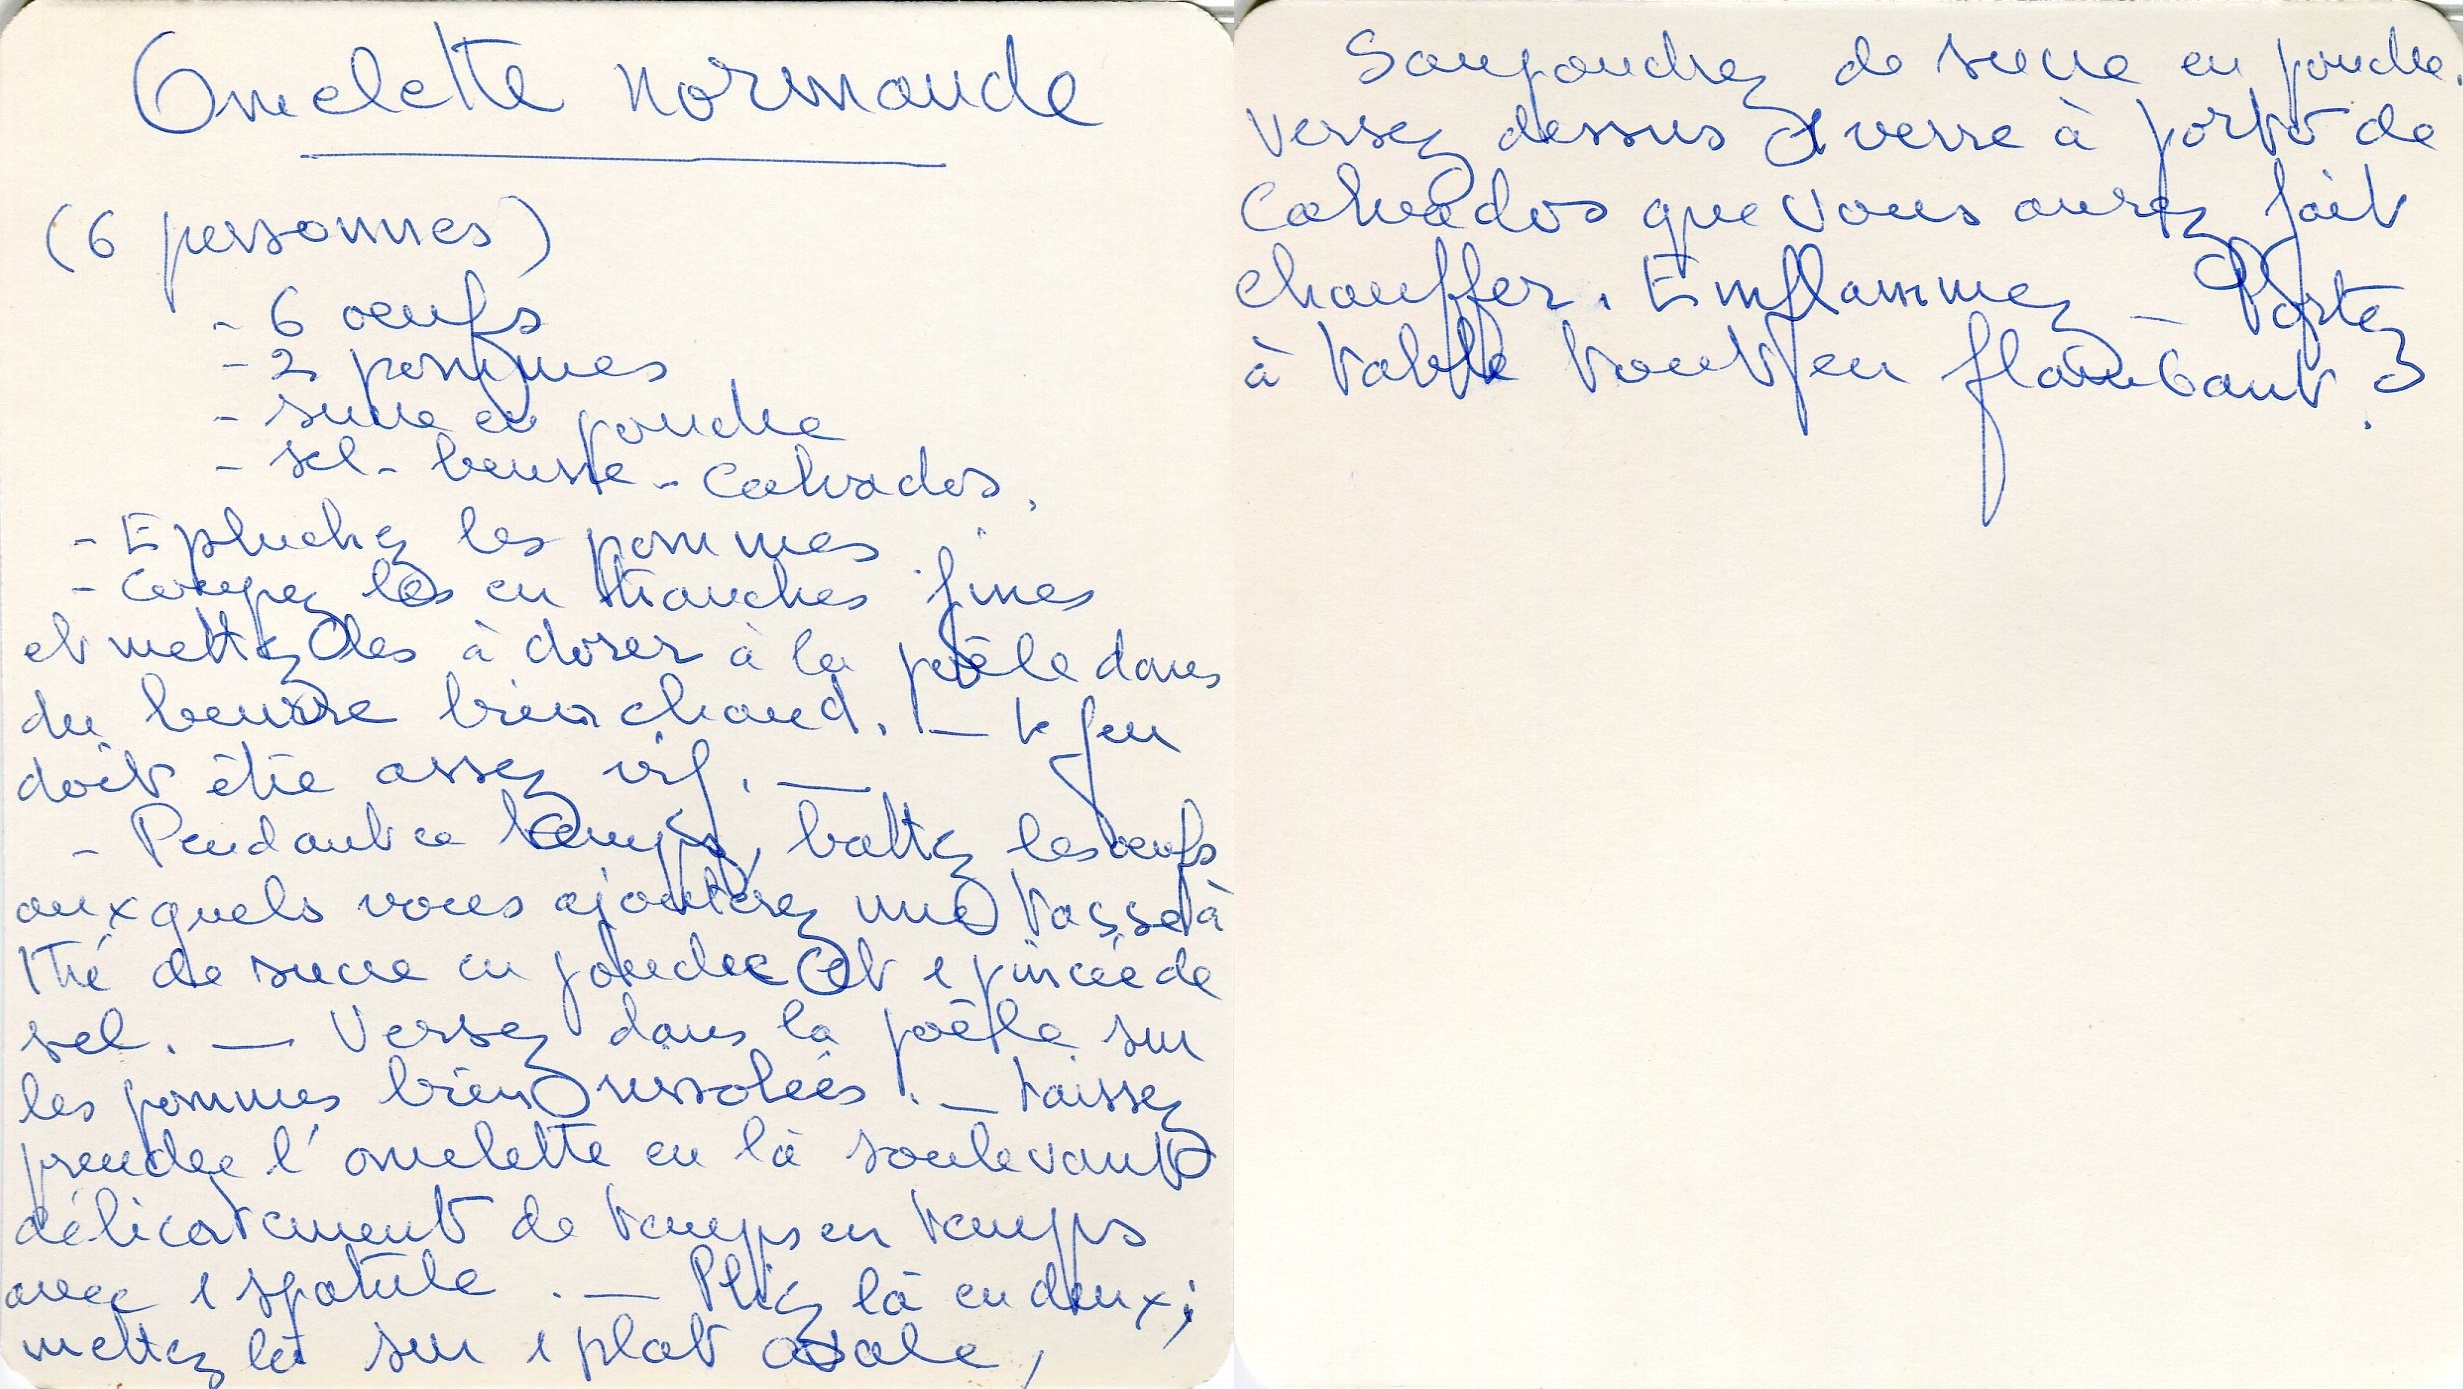 Omelette normande
(6 personnes)
- 6 oeufs
- 2 pommes
- sucre en poudre
- sel - beurre - Calvados.
- Epluchez les pommes
- Coupez les en tranches fines
et mettez les à dorer à la poêle dans
du beurre bien chaud. — le feu
doit être assez vif. —
- Pendant ce temps, battez les oeufs
auxquels vous ajouterez une tasse à
thé de sucre en poudre et 1 pincée de
sel. — Versez dans la poêle sur
les pommes bien rissolées. — Laissez
prendre l'omelette en là soulevant
délicatement de temps en temps
avec 1 spatule. — Pliez là en deux;
mettez là sur 1 plat ovale,
Saupoudrez de sucre en poudre.
Versez dessus 1 verre à porto de
Calvados que vous aurez fait
chauffer. Emflammez — Portez
à table tout feu flambant.